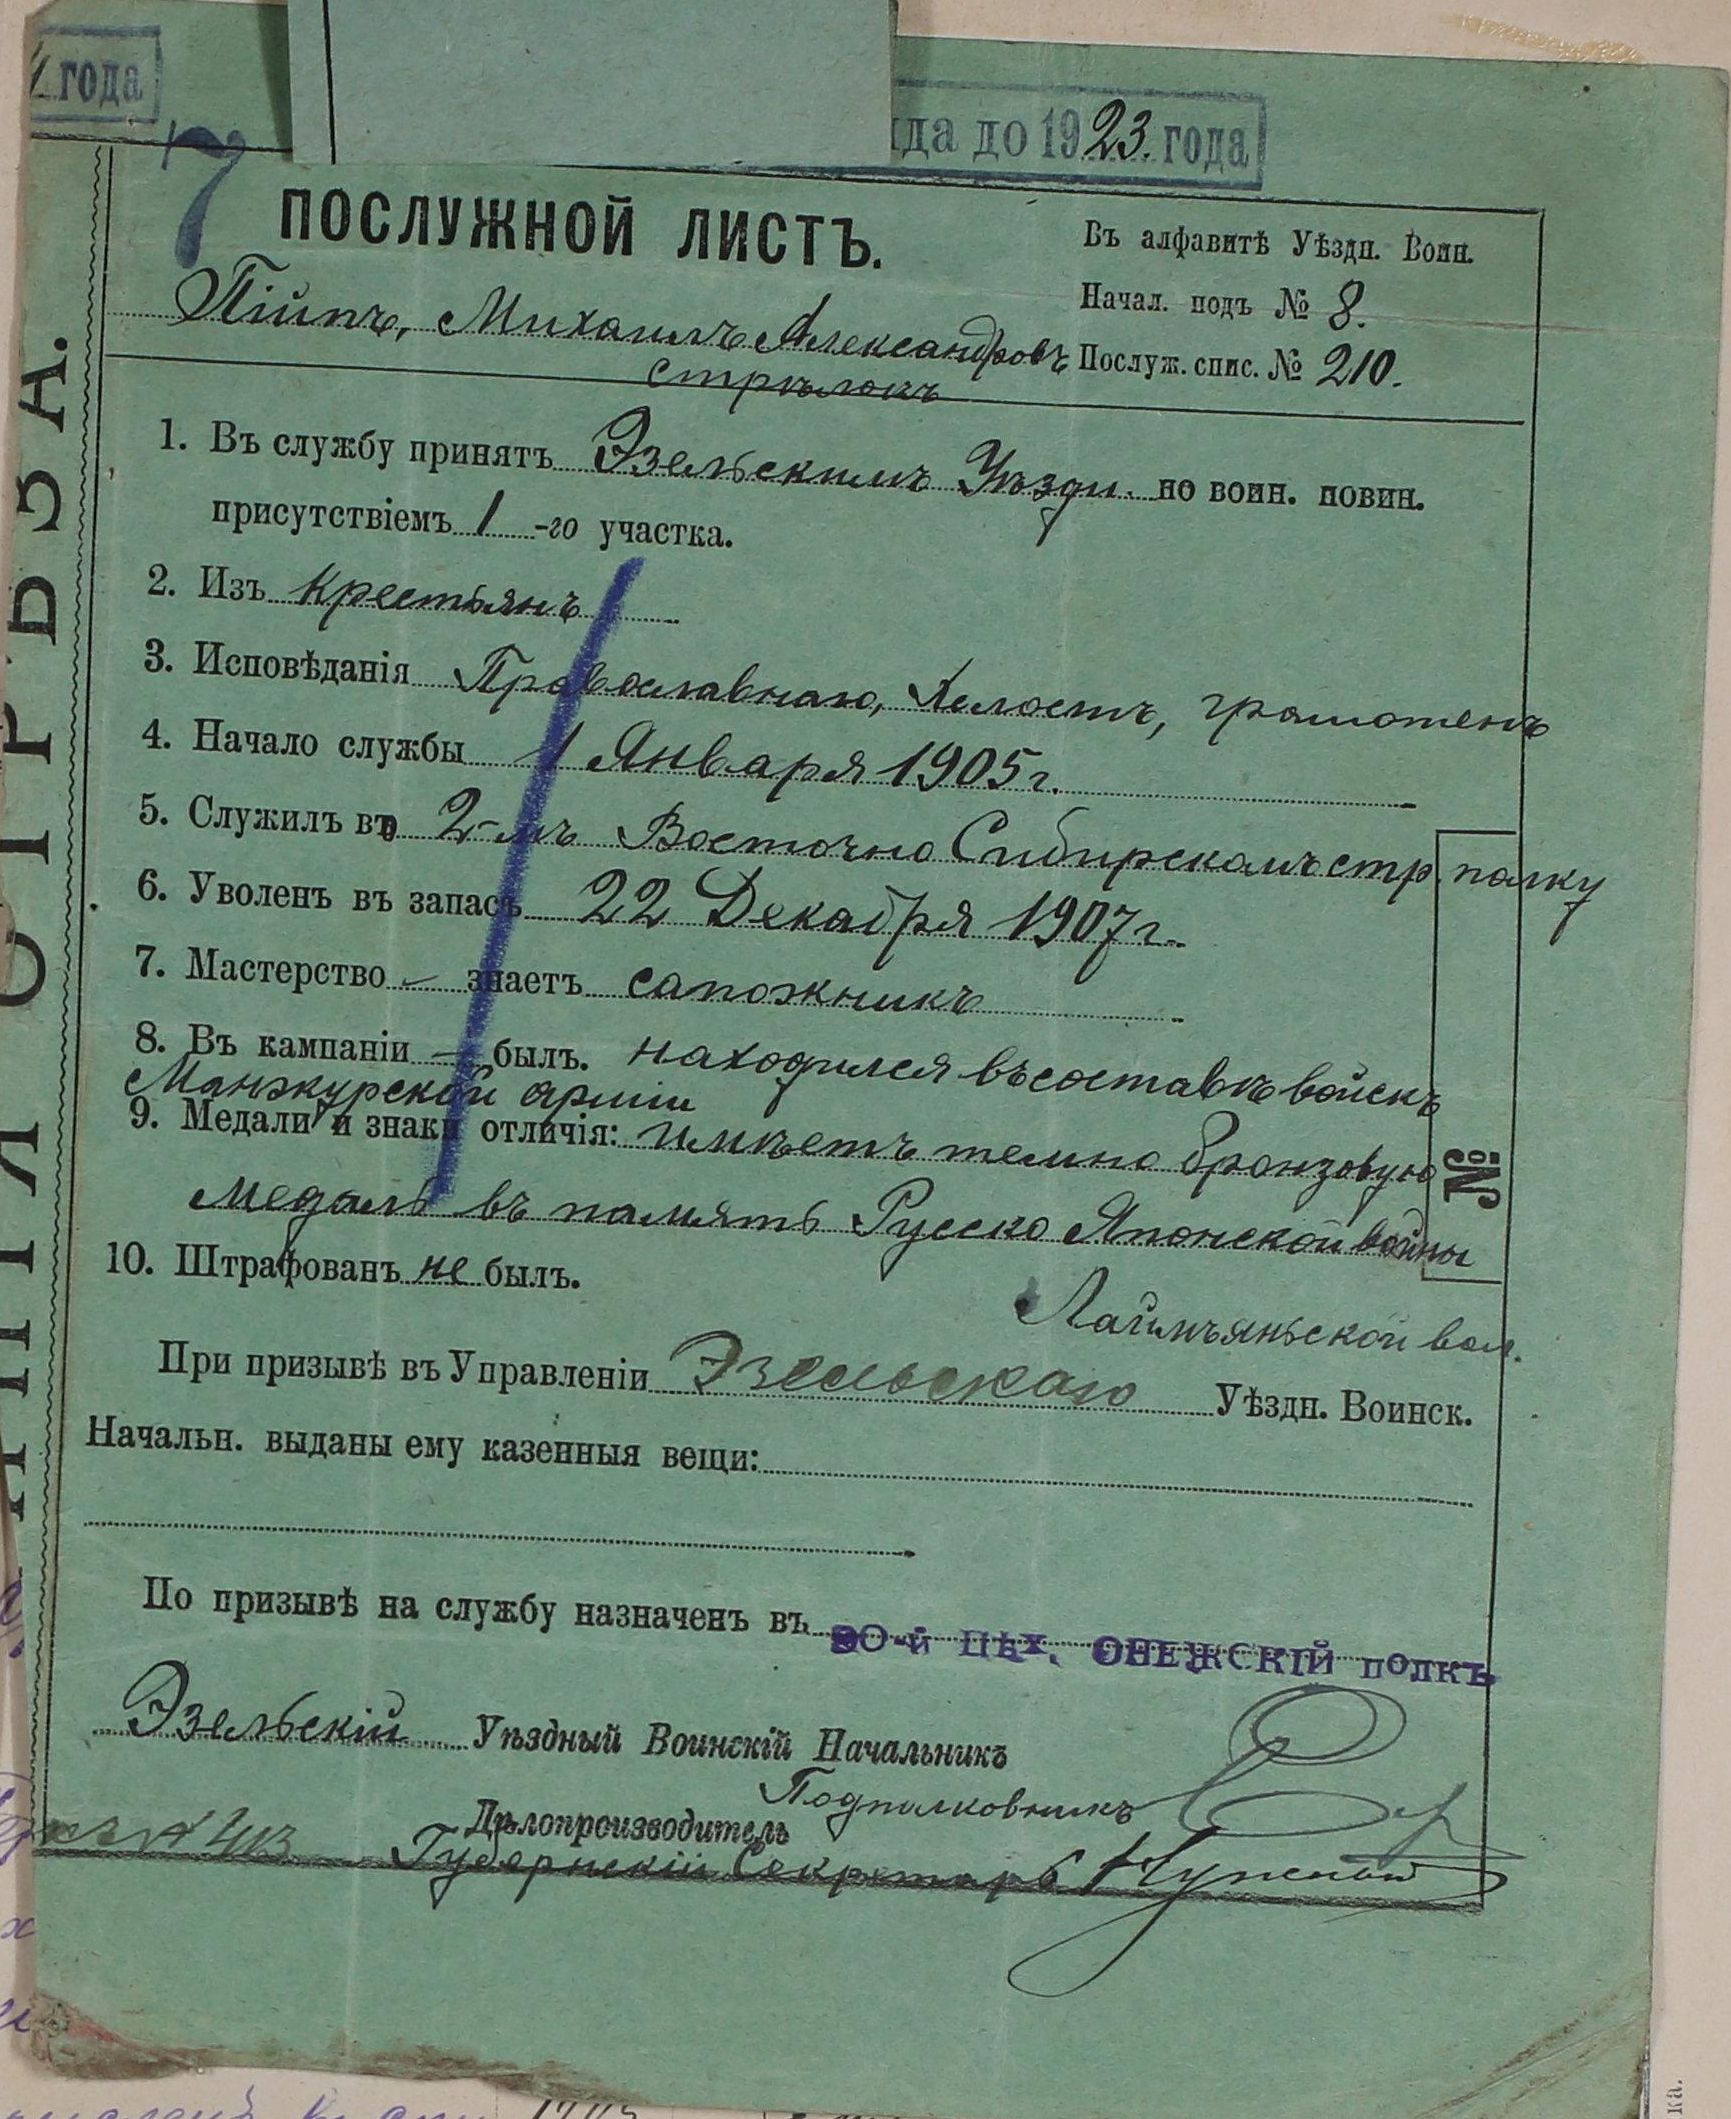 года
да до 1923. года
7
ПОСЛУЖНОЙ ЛИСТЪ.
Въ алфавитѣ Уѣздн. Воин.
Начал. подъ № 8.
Пійпъ, Михаилъ Александровъ
Послуж. спис. № 210.
стрѣлокъ
1. Въ службу принятъ Эзельскимъ Уѣздн. по воин. повин.
присутствіемъ 1-го участка.
2. Изъ крестьянъ
3. Исповѣданія Православнаго, Холостъ, грамотенъ
4. Начало службы 1 Января 1905 г.
5. Служилъ во 2-мъ Восточно Сибирскомъ стр. полку
6. Уволенъ въ запасъ 22 Декабря 1907 г.
7. Мастерство – знаетъ сапожникъ
8. Въ кампаніи – былъ. находился въ составѣ войскъ
Манжурской арміи
9. Медали и знаки отличія: имѣетъ темно бронзовую
медаль въ память Русско Японской войны
№
10. Штрафованъ не былъ.
Лаймъяньской вол.
При призывѣ въ Управленіи Эзельскаго Уѣздн. Воинск.
Начальн. выданы ему казенныя вещи:
По призывѣ на службу назначенъ въ 90-й ПѢХ. ОНЕЖСКІЙ полкъ
Эзельскій Уѣздный Воинскій Начальникъ
Подполковникъ
Дѣлопроизводитель
Губернскій Секретарь